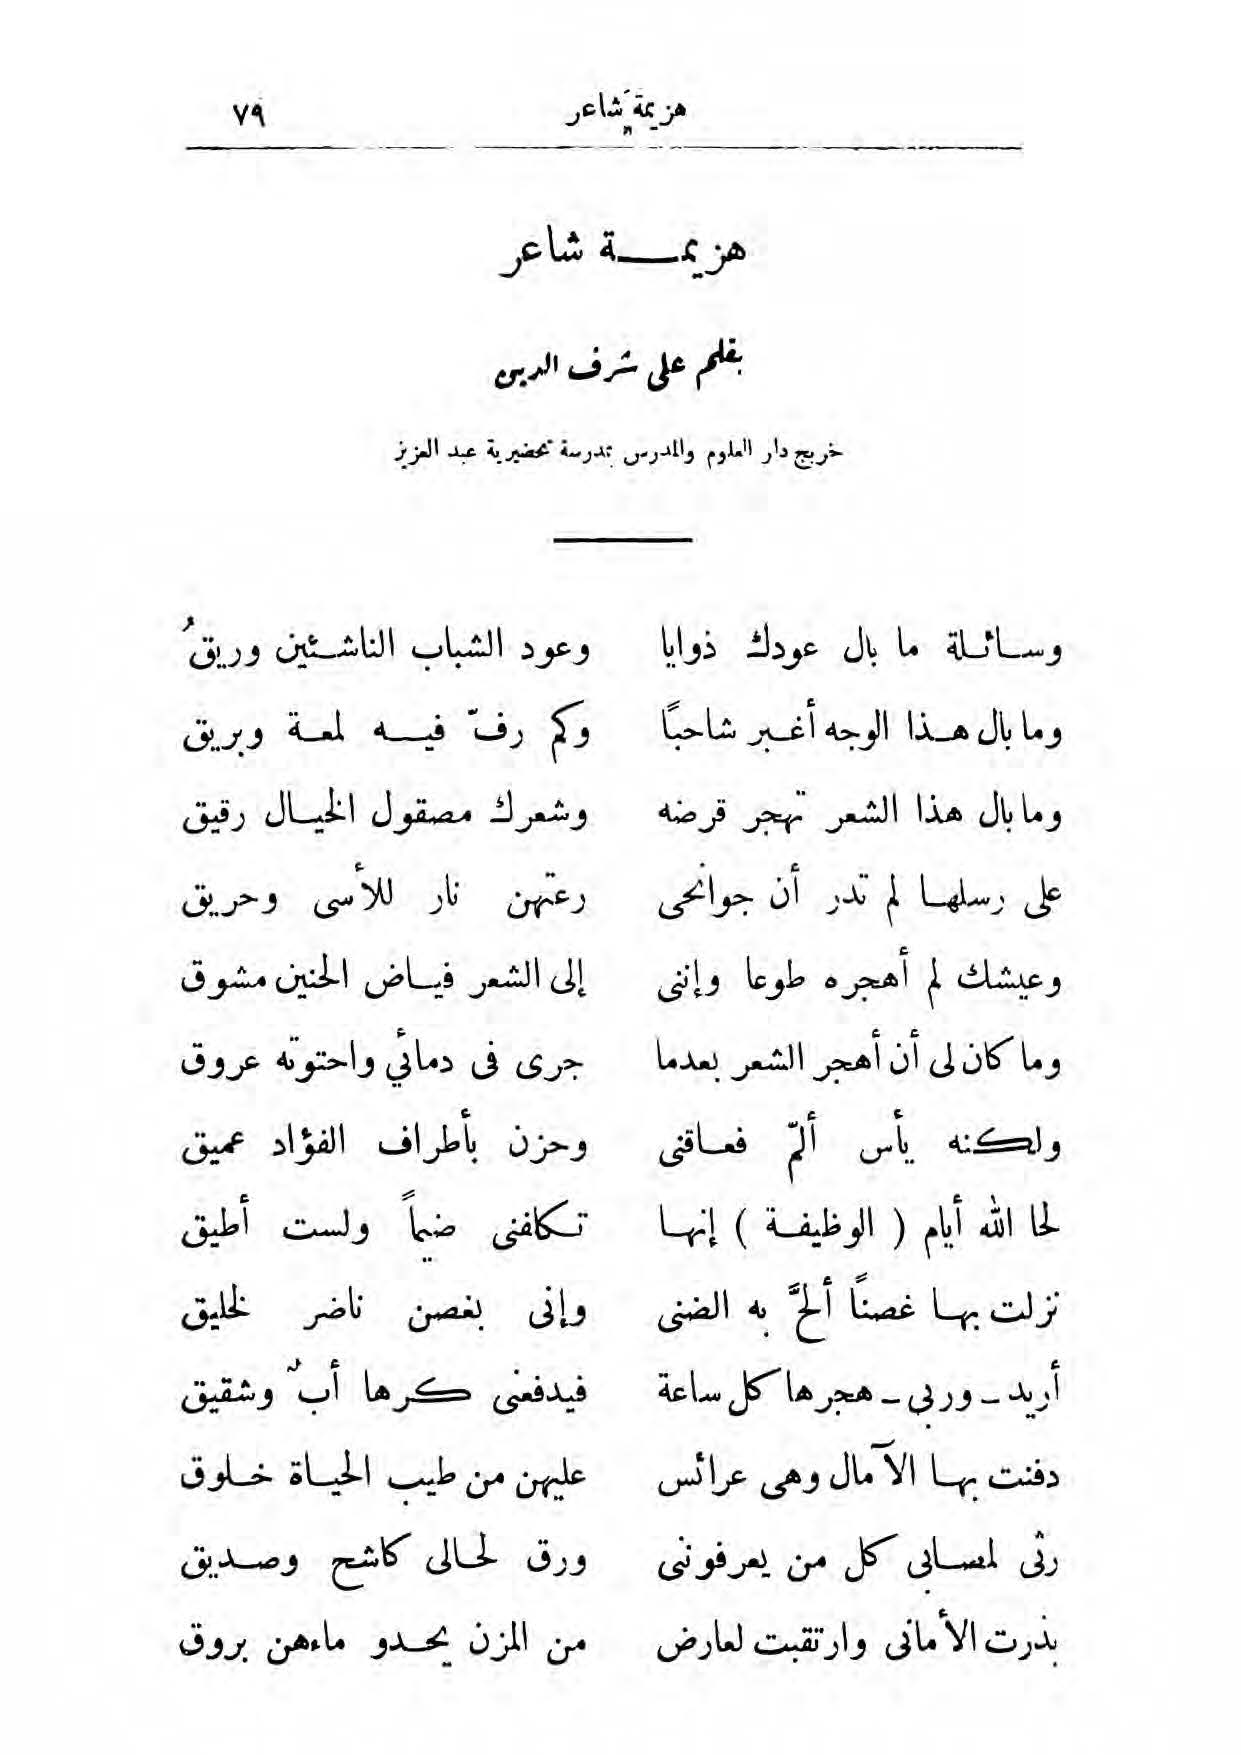 هزيمة شاعر ٧٩
هزيمة شاعر
بقلم على شرف الدين
خريج دار العلوم والمدرس بمدرسة تحضيرية عبد العزيز
وسائلة ما بال عودك ذوايا وعود الشباب الناشئين وريقُ
وما بال هذا الوجه أغبر شاحبًا وكم رفّ فيه لمعة وبريق
وما بال هذا الشعر تهجر قرضه وشعرك مصقول الخيال رقيق
على رسلها لم تدر أن جوانحى رعتهن نار للأسى وحريق
وعيشك لم أهجره طوعا وإننى إلى الشعر فياض الحنين مشوق
وما كان لى أن أهجر الشعر بعدما جرى فى دمائي واحتوته عروق
ولكنه يأس ألمّ فعاقنى وحزن بأطراف الفؤاد عميق
لحا الله أيام ( الوظيفة ) إنها تكافنى ضيماً ولست أطيق
نزلت بها غصنًا ألحَّ به الضنى وإنى بغصن ناضر لخليق
أريد ـ وربي ـ هجرها كل ساعة فيدفعنى كرها أبٌ وشقيق
دفنت بها الآمال وهى عرائس عليهن من طيب الحياة خلوق
رثى لمصابى كل من يعرفوننى ورق لحالى كاشح وصديق
بذرت الأمانى وارتقبت لعارض من المزن يحدو ماءهن بروق